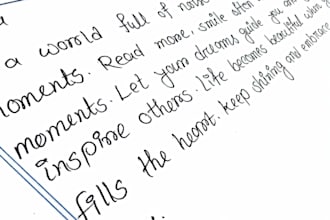 a world full of
moments. Read more, smile often
moments. Let your dreams guide you and
inspire others. Life becomes beautiful when
fills the heart. keep shining and embrace